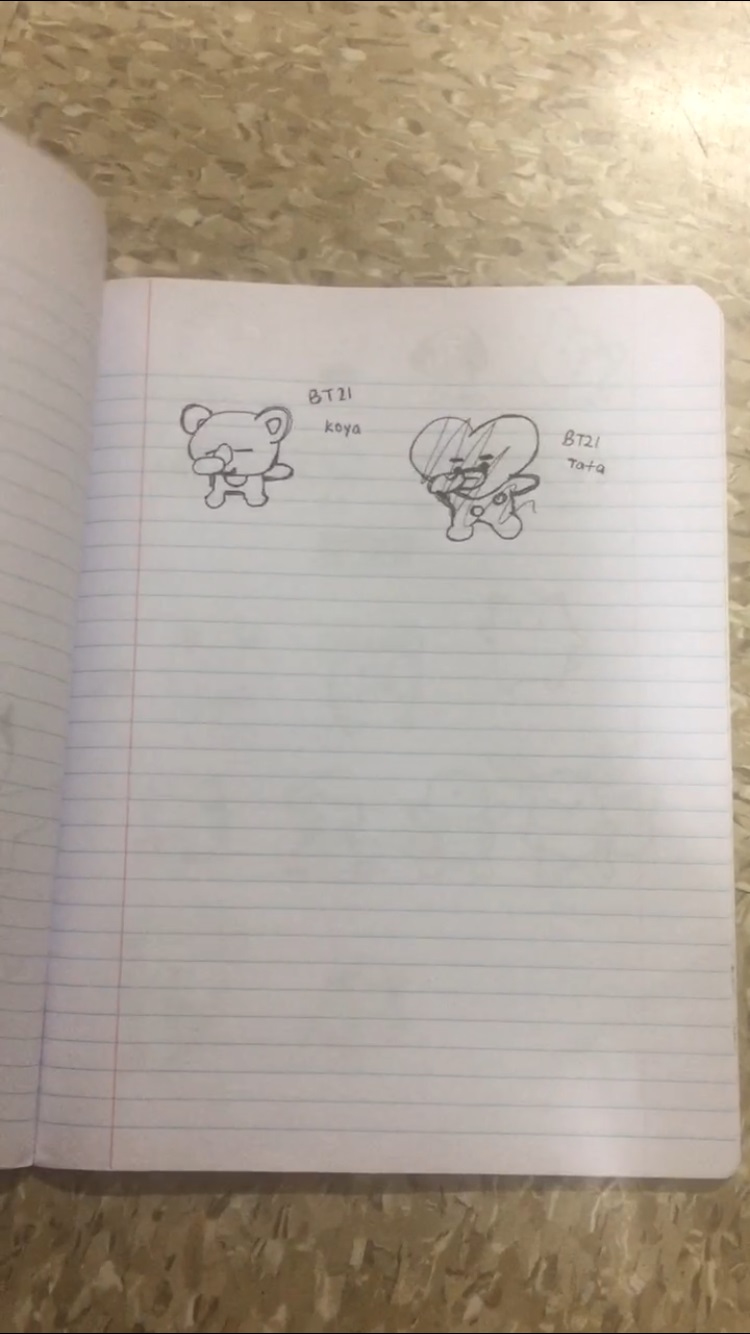 BT21
koya
BT21
Tata